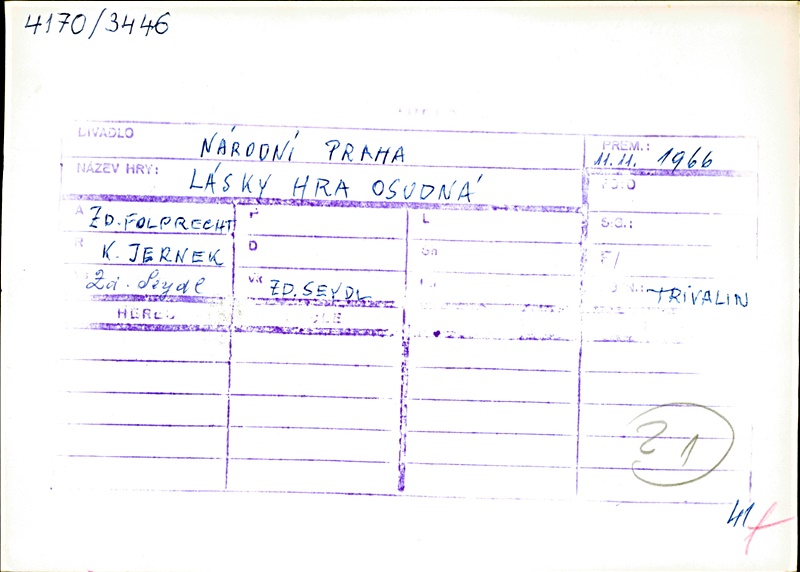 4170/3446
DIVADLO NÁRODNÍ PRAHA PREM.: 11.11. 1966
NÁZEV HRY: LÁSKY HRA OSUDNÁ
A ZD. FOLPRECHT P L S.G.:
R K. JERNEK D F/
Zd. Seydl VK ZD. SEYDL TRIVALIN
HEREC
21
41